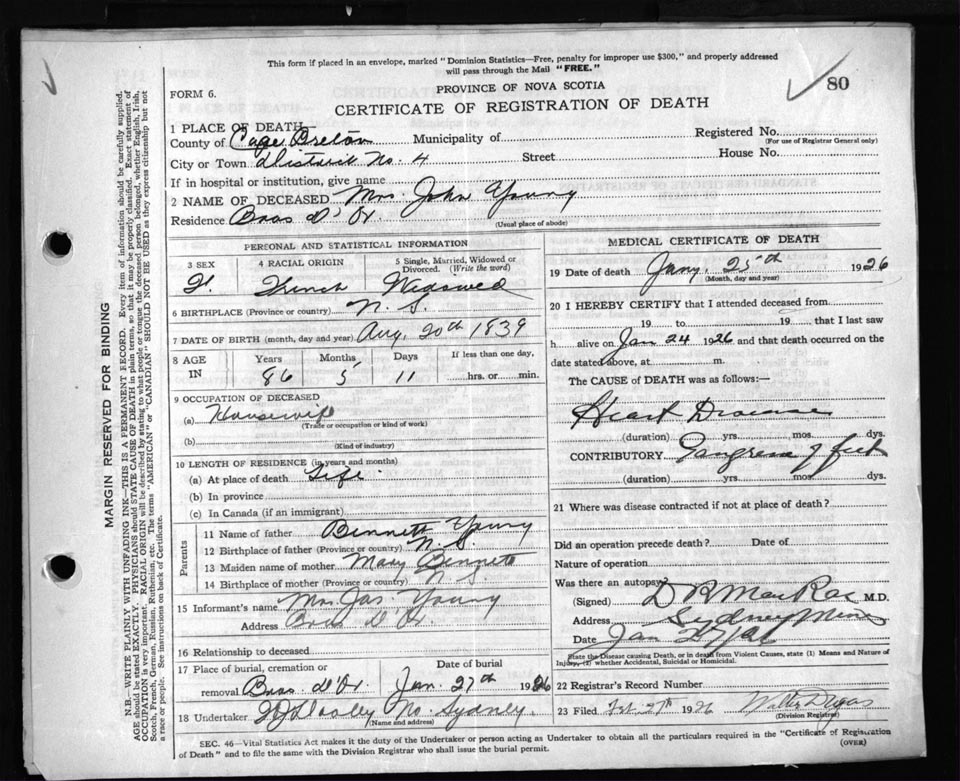 This form if placed in an envelope, marked "Dominion Statistics—Free, penalty for improper use $300," and properly addressed
will pass through the Mail "FREE."
80
PROVINCE OF NOVA SCOTIA
FORM 6.
CERTIFICATE OF REGISTRATION OF DEATH
1 PLACE OF DEATH
County of Cape Breton Municipality of Registered No.
(For use of Registrar General only)
City or Town District No. 4 Street House No.
If in hospital or institution, give name
2 NAME OF DECEASED Mrs. John Young
Residence Bras D'Or.
(Usual place of abode)
PERSONAL AND STATISTICAL INFORMATION
3 SEX 4 RACIAL ORIGIN 5 Single, Married, Widowed or
Divorced. (Write the word)
F. French Widowed
6 BIRTHPLACE (Province or country) N. S.
7 DATE OF BIRTH (month, day and year) Aug. 20th 1839
8 AGE IN Years Months Days If less than one day,
86 5 11 hrs. or min.
9 OCCUPATION OF DECEASED
(a) Housewife
(Trade or occupation or kind of work)
(b)
(Kind of industry)
10 LENGTH OF RESIDENCE (in years and months)
(a) At place of death Life.
(b) In province
(c) In Canada (if an immigrant)
Parents
11 Name of father Bennett Young
12 Birthplace of father (Province or country) N. S.
13 Maiden name of mother Mary Bennett
14 Birthplace of mother (Province or country) N. S.
15 Informant's name Mrs. Jas. Young
Address Bras D'Or.
16 Relationship to deceased
17 Place of burial, cremation or Date of burial
removal Bras d'Or. Jan. 27th 1926
18 Undertaker No. Sydney.
(Name and address)
MEDICAL CERTIFICATE OF DEATH
19 Date of death Jany. 25th 1926
(Month, day and year)
20 I HEREBY CERTIFY that I attended deceased from
19 to 19 that I last saw
h alive on Jan 24 1926 and that death occurred on the
date stated above, at m.
The CAUSE of DEATH was as follows:—
Heart Disease
(duration) yrs. mos. dys.
CONTRIBUTORY Gangrene of feet
(duration) yrs. mos. dys.
21 Where was disease contracted if not at place of death?
Did an operation precede death? Date of
Nature of operation
Was there an autopsy
(Signed) D R MacRae M.D.
Address Sydney Mines
Date Jan
State the Disease causing Death, or in death from Violent Causes, state (1) Means and Nature of
Injury, (2) whether Accidental, Suicidal or Homicidal.
22 Registrar's Record Number
23 Filed 1926
(Division Registrar)
SEC. 46—Vital Statistics Act makes it the duty of the Undertaker or person acting as Undertaker to obtain all the particulars required in the "Certificate of Registration
of Death" and to file the same with the Division Registrar who shall issue the burial permit.
(OVER)
MARGIN RESERVED FOR BINDING
N.B.—WRITE PLAINLY WITH UNFADING INK—THIS IS A PERMANENT RECORD. Every item of information should be carefully supplied.
AGE should be stated EXACTLY. PHYSICIANS should STATE CAUSE OF DEATH in plain terms, so that it may be properly classified. Exact statement of
OCCUPATION is very important. RACIAL ORIGIN will be described by stating to what people or tongue the deceased person belonged, whether English, Irish,
Scotch, French, German, Russian, Ruthenian, etc. The terms "AMERICAN" or "CANADIAN" SHOULD NOT BE USED as they express citizenship but not
a race or people. See instructions on back of Certificate.